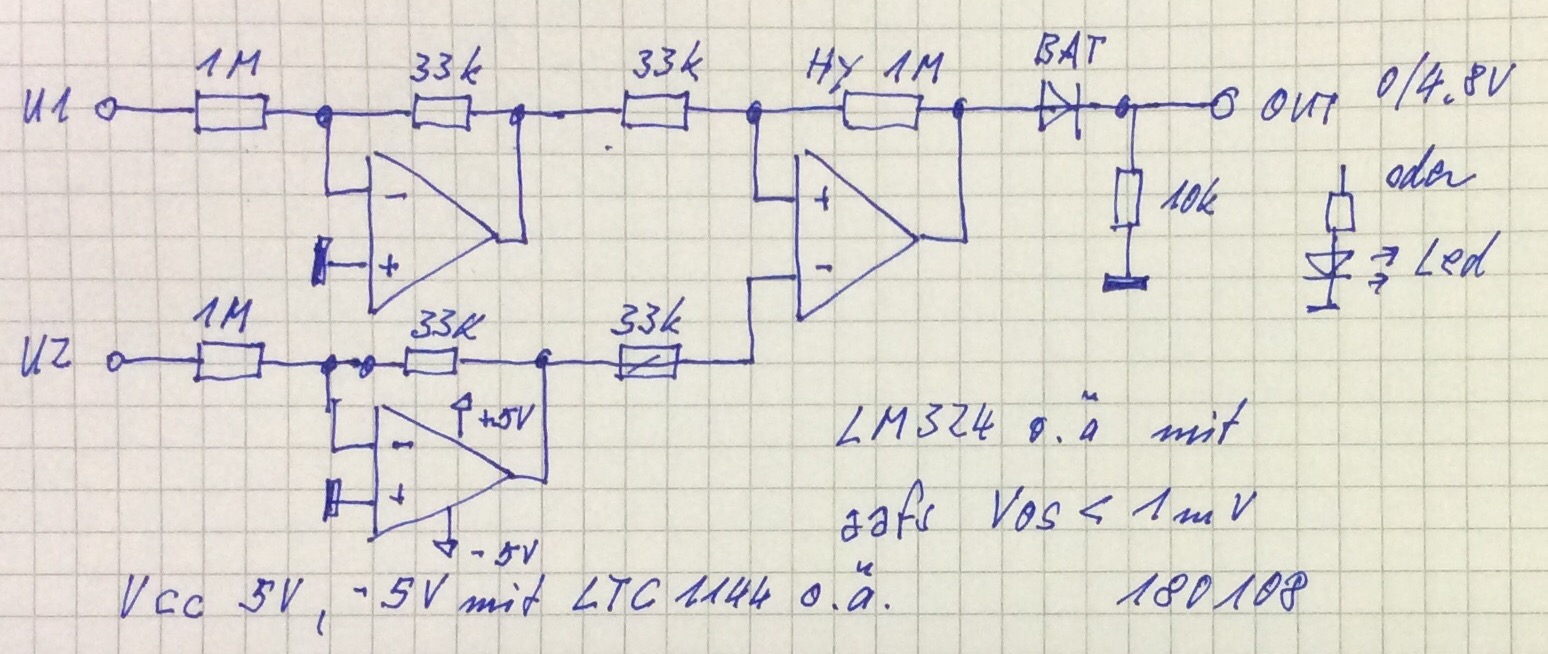 1M 33k 33k Hy 1M BAT
U1 OUT 0/4.8V
- + 10k oder
+ - Led
1M 33k 33k
U2
+5V
- LM324 o.ä mit
+ ggfs Vos < 1mV
-5V
Vcc 5V, -5V mit LTC1144 o.ä. 180108